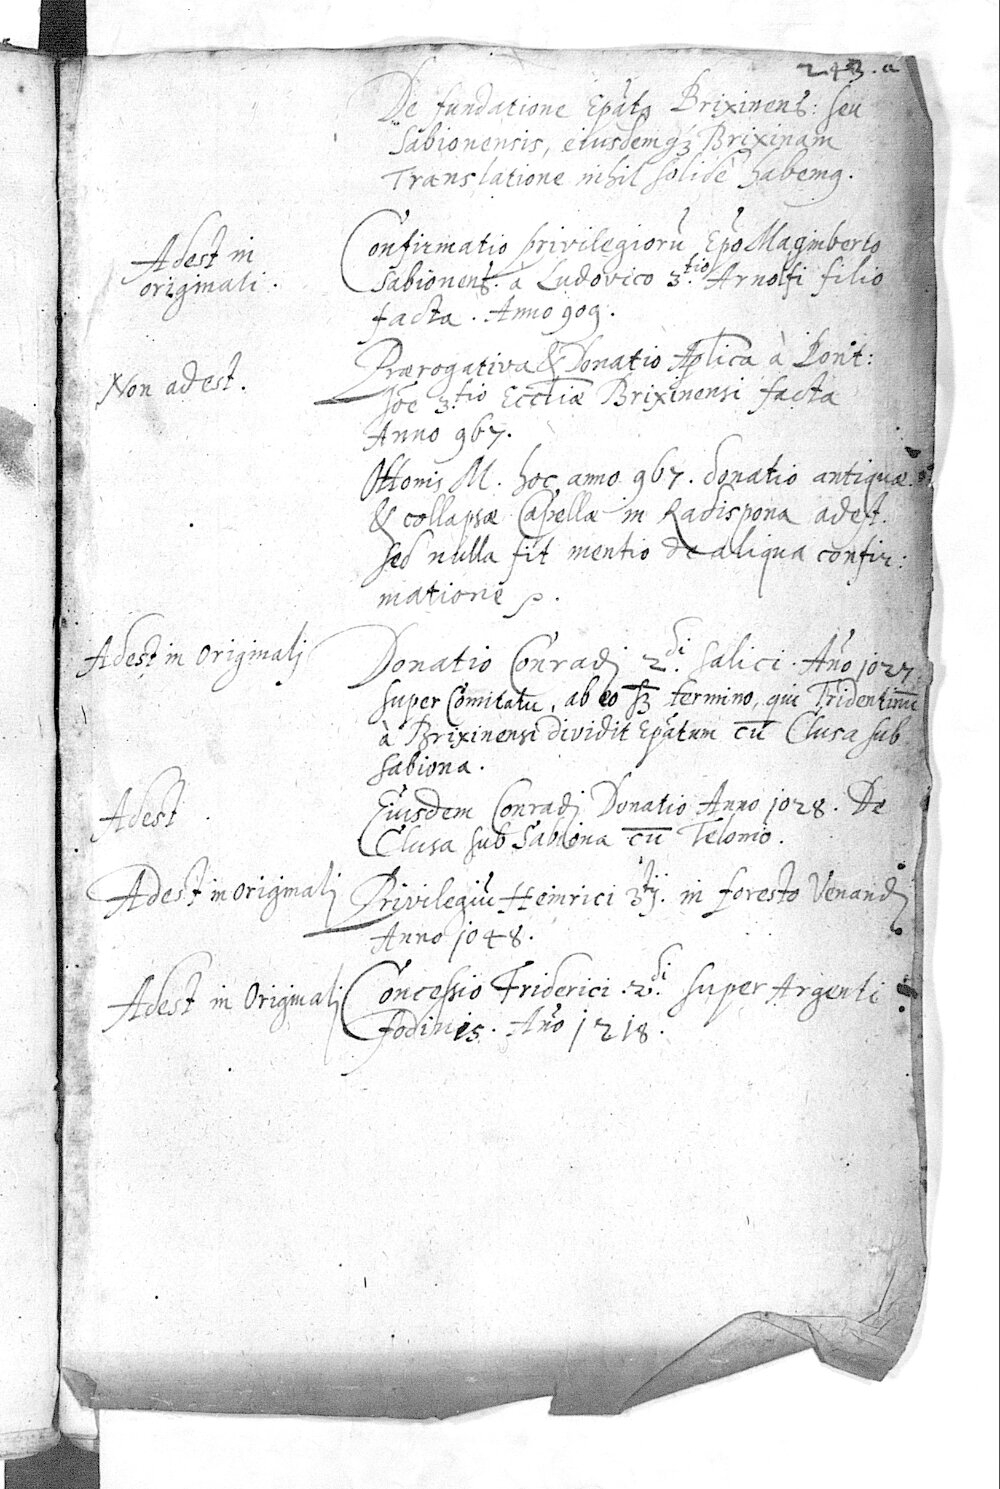 243.a
De fundatione Epāt9 Brixinens: seu
Sabionensis, eiusdemq3 Brixinam
Translatione nihil solidè habem9.
Adest in
originali.
Confirmatio privilegiorū Epō Maginberto
Sabionens. a Ludovico 3.tio Arnolfi filio
facta. Anno 909.
Non adest.
Prærogativa & Donatio Aplica à Pont:
Joē 3.tio Eccliæ Brixinensi facta
Anno 967.
Ottonis M. hoc anno 967. donatio antiquæ
& collapsæ Capellæ in Radispona adest.
sed nulla fit mentio de aliqua confir:
matione
Adest in Originalj
Donatio Conradj 2.di Salici. Año 1027
super Comitatu, ab eo termino, qui Tridentinū
à Brixinensi dividit Epātum cū Clusa sub
Sabiona.
Adest
Eiusdem Conradj Donatio Anno 1028. De
Clusa sub Sabiona cū Telonio.
Adest in originalj
Privilegiū Heinrici 3.tij. in foresto Venandj
Anno 1048.
Adest in Originalj
Concessio Friderici .2.di super Argenti
Fodinis. Año 1218.